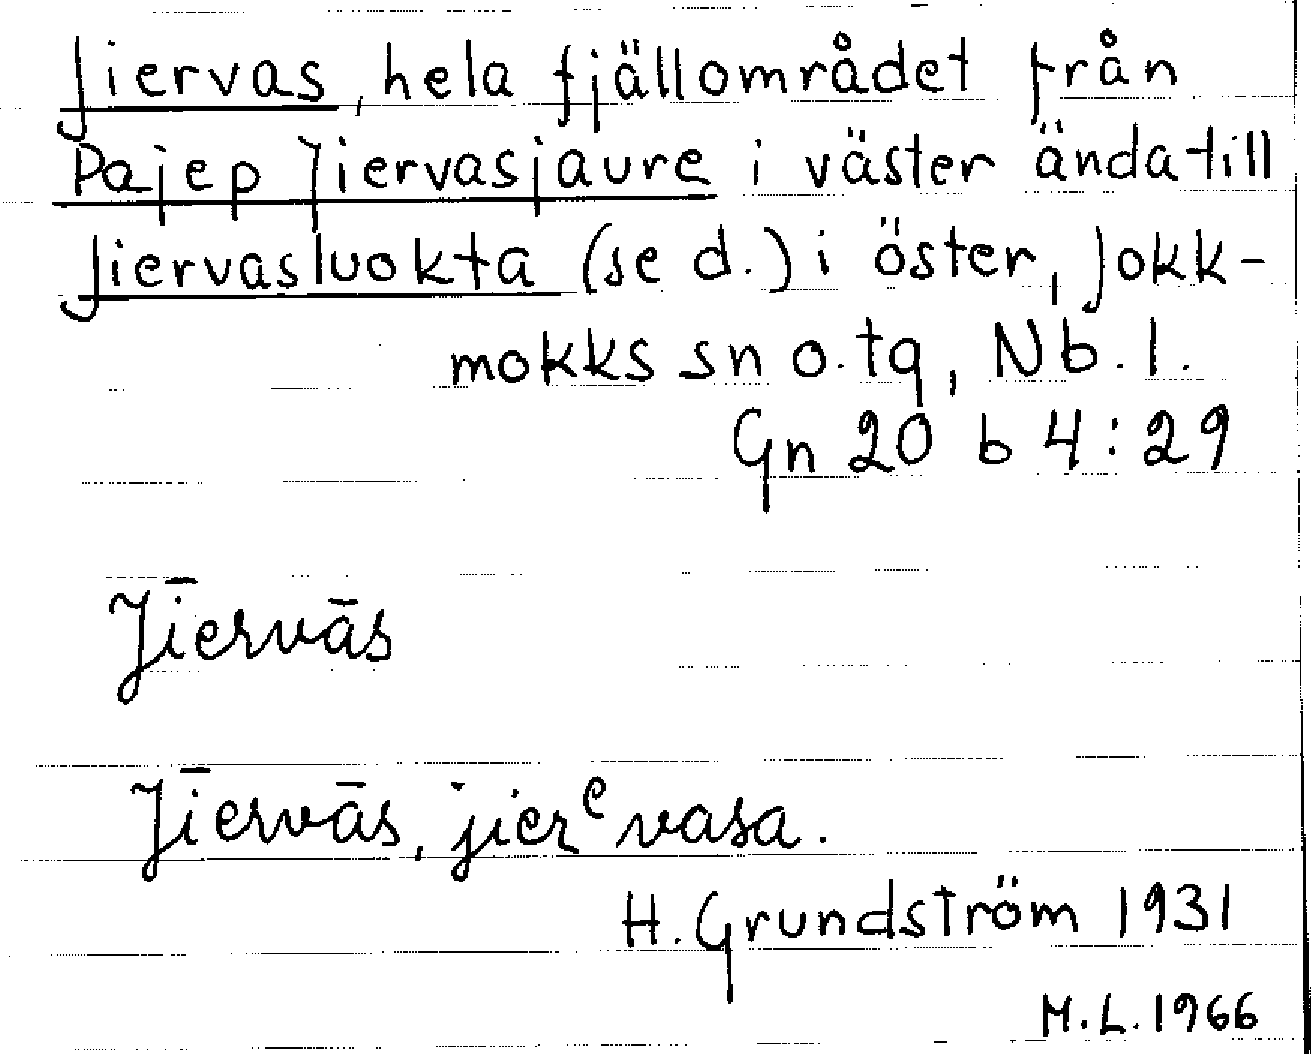 Jiervas, hela fjällområdet från
Pajep Jiervasjaure i väster ända till
Jiervasluokta (se d.) i öster, Jokk-
mokks sn o. tg, Nb. l.
Gn 20 b 4:29
Jīervās
Jīervās, jierᵉvasa.
H. Grundström 1931
M.L. 1966